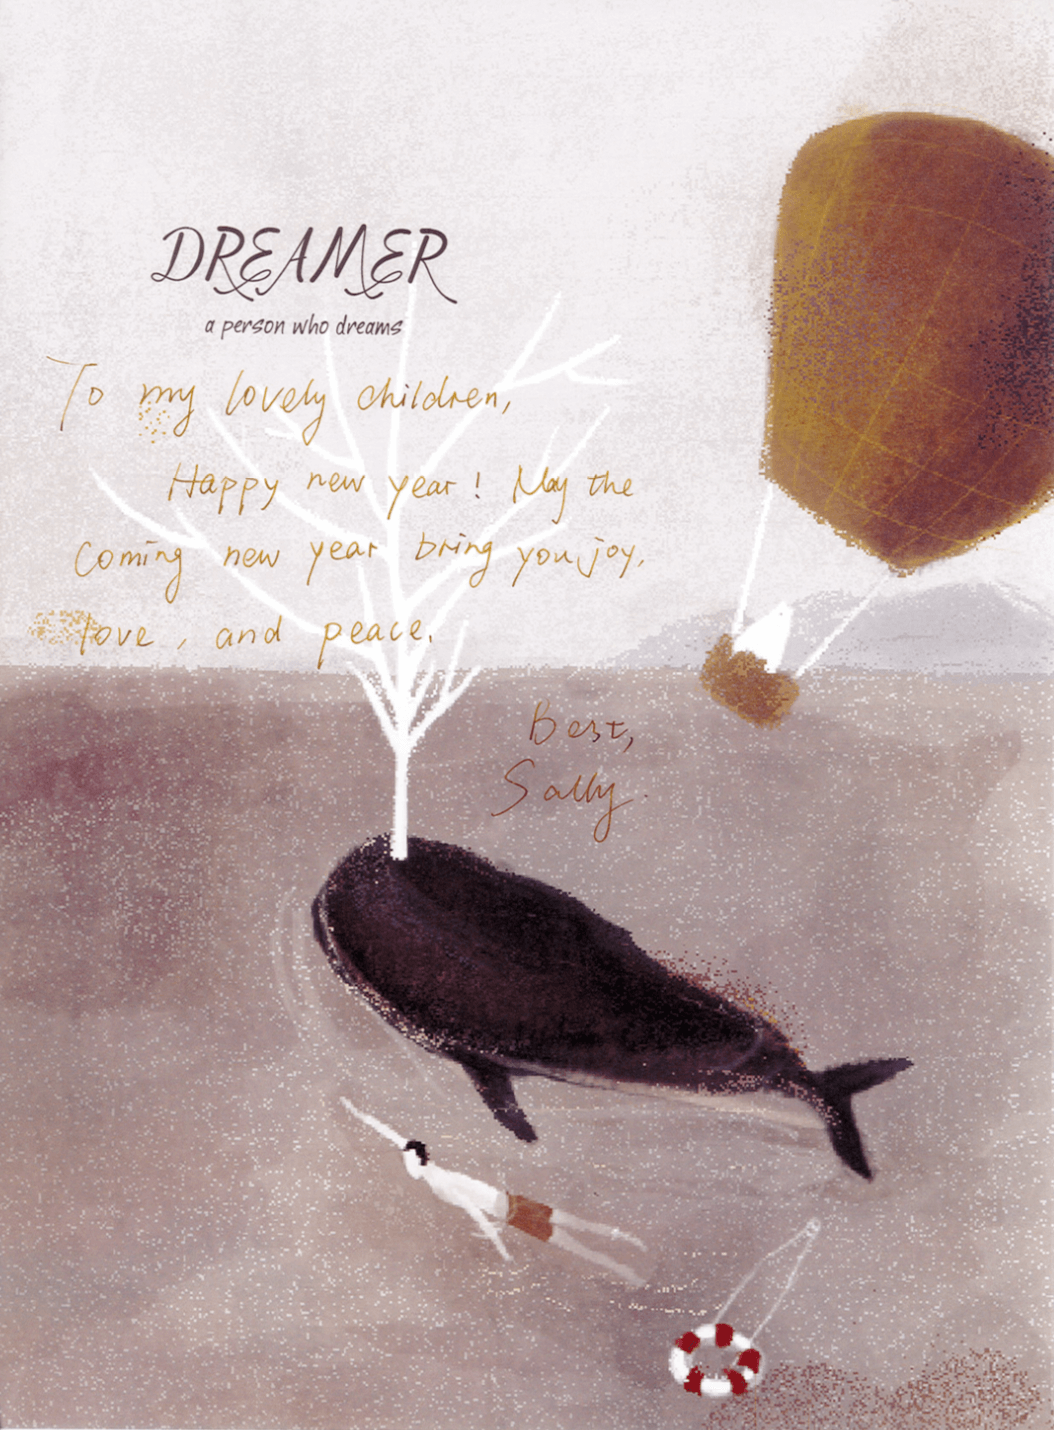 DREAMER
a person who dreams
To my lovely children,
Happy new year! May the
Coming new year bring you joy,
love, and peace.
Best,
Sally